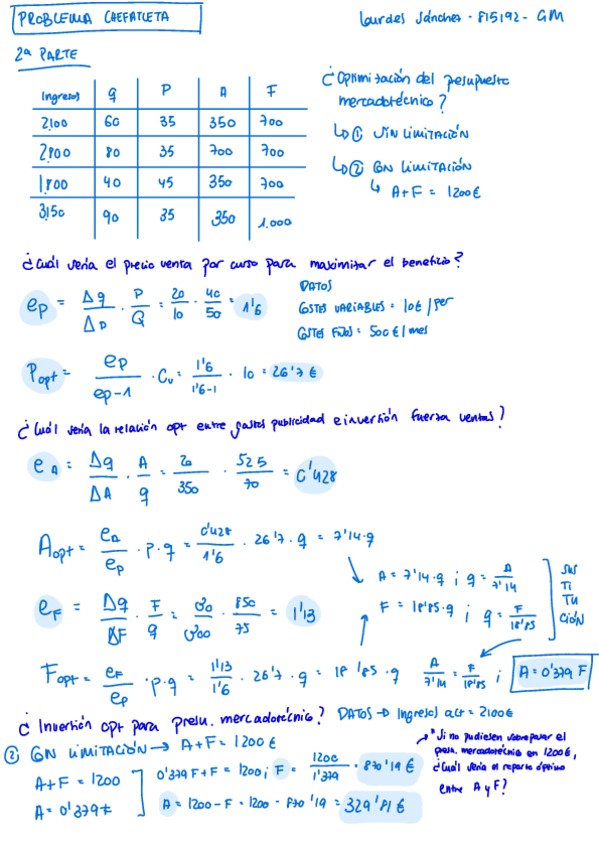 PROBLEMA CHEFATLETA
Lourdes Sánchez - 815192 - GM
2ª PARTE
Ingresos q P A F
2.100 60 35 350 700
2.800 80 35 700 700
1.800 40 45 350 700
3.150 90 35 350 1.000
¿Optimización del presupuesto
mercadotécnico?
↳ ① SIN LIMITACIÓN
↳ ② CON LIMITACIÓN
↳ A+F = 1200€
¿Cuál sería el precio venta por curso para maximizar el beneficio?
eP = Δq/ΔP · P/Q = 20/10 · 40/50 = 1'6
DATOS
COSTES VARIABLES = 10€/per
COSTES FIJOS = 500€/mes
Popt = eP/eP-1 · Cv = 1'6/1'6-1 · 10 = 26'7 €
¿Cuál sería la relación opt entre gastos publicidad e inversión fuerza ventas?
eA = Δq/ΔA · A/q = 20/350 · 525/70 = 0'428
Aopt = eA/eP · P · q = 0'428/1'6 · 26'7 · q = 7'14 · q
A = 7'14 · q ; q = A/7'14
F = 18'85 · q ; q = F/18'85
SUS
TI
TU
CIÓN
eF = Δq/ΔF · F/q = 30/300 · 850/75 = 1'13
Fopt = eF/eP · P · q = 1'13/1'6 · 26'7 · q = 18'85 · q
A/7'14 = F/18'85 ; A = 0'379 F
¿Inversión opt para presu. mercadotécnico? DATOS → Ingresos act = 2100€
② CON LIMITACIÓN → A+F = 1200€
* Si no pudiesen sobrepasar el
presu. mercadotécnico en 1200€,
¿Cuál sería el reparto óptimo
entre A y F?
A+F = 1200
A = 0'379F
0'379F + F = 1200 ; F = 1200/1'379 = 870'19 €
A = 1200 - F = 1200 - 870'19 = 329'81 €